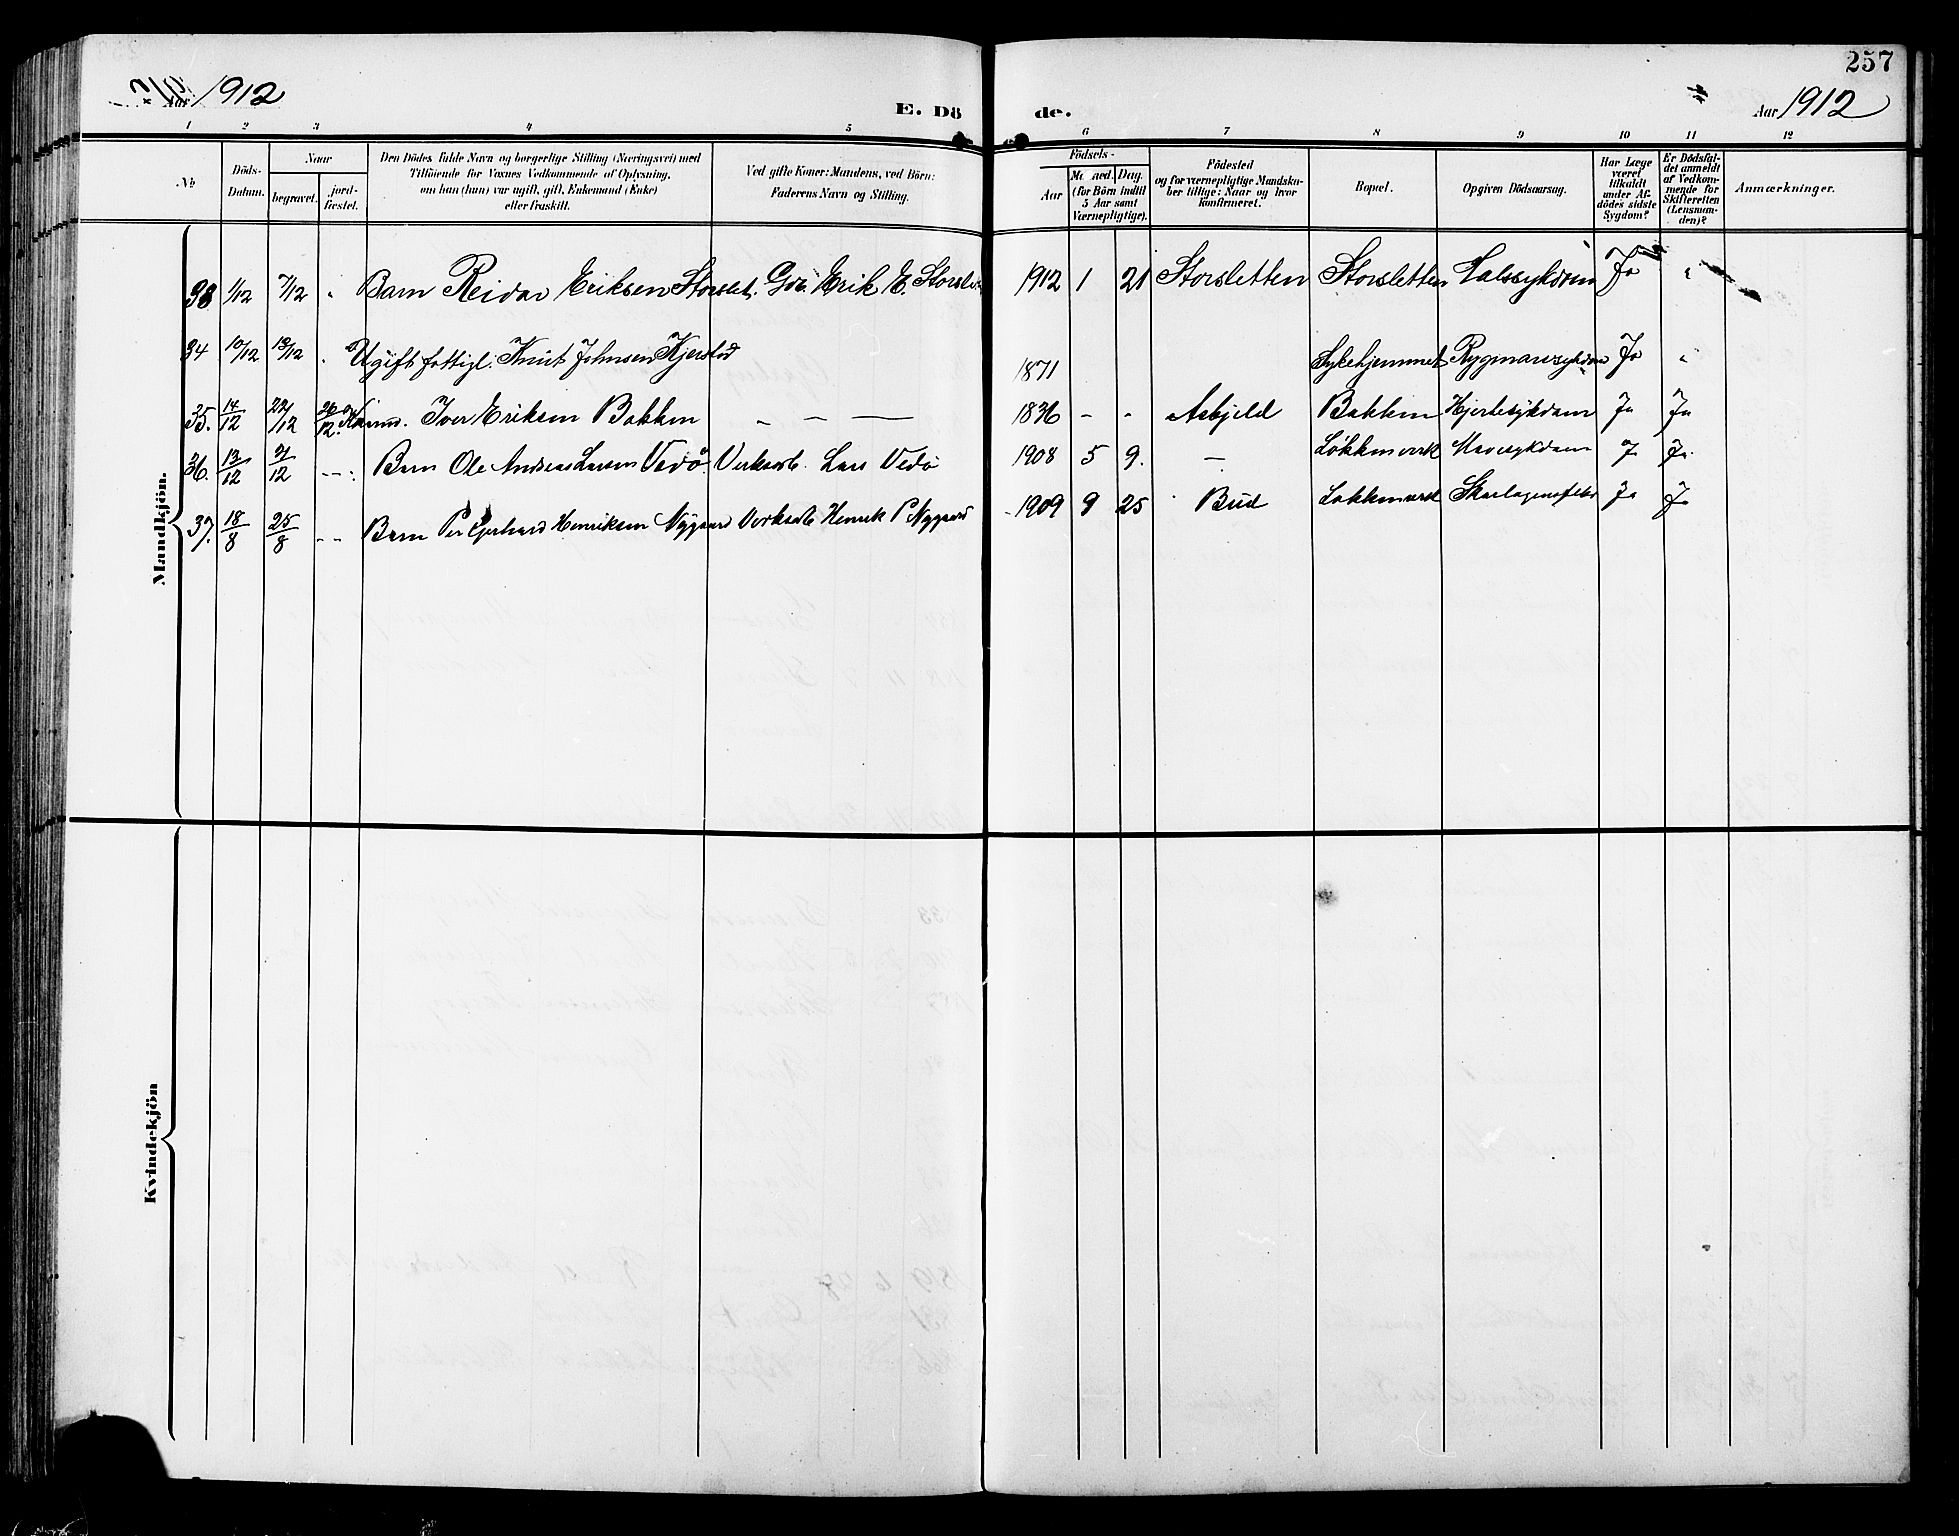 257
Aar 1912
E. Dö
de.
Aar 1912
1 2 3 4 5 6 7 8 9 10 11 12
No
Döds-Datum.
Naar
begravet.
jord-fæstet.
Den Dödes fulde Navn og borgerlige Stilling (Næringsvei) med
Tilföiende for Voxnes Vedkommende af Oplysning,
om han (hun) var ugift, gift, Enkemand (Enke)
eller fraskilt.
Ved gifte Koner: Mandens, ved Börn:
Faderens Navn og Stilling.
Födsels-
Aar
Maaned. Dag.
(for Börn indtil
5 Aar samt
Værnepligtige).
Födested
og for værnepligtige Mandska-
ber tillige: Naar og hvor
konfirmeret.
Bopæl.
Opgiven Dödsaarsag.
Har Læge
været
tilkaldt
under Af-
dödes sidste
Sygdom?
Er Dödsfal-
det anmeldt
af Vedkom-
mende for
Skifteretten
(Lensman-
den)?
Anmærkninger.
Mandkjön.
33 1/12 7/12 " Barn Reidar Eriksen Storslet. Gbr. Erik E. Storslet 1912 1 21 Storsletten Storsletten Halssykdom Ja "
34 10/12 13/12 " Ugift fattigl. Knut Johnsen Kjerstad 1871 Sykehjemmet Rygmarvsykdom Ja "
35. 14/12 22/12 26/12 Iver Eriksen Bakken - — 1836 - - Asbjeld Bakken Hjertesykdom Ja Ja
36. 13/12 /12 -- Barn Ole Andreas Larsen Vedø Verksarb. Lars Vedø 1908 5 9. - Løkkenverk Mavesykdom J Ja
37. 18/8 25/8 -- Barn Per Gerhard Henriksen Nygaard Verksarb Henrik P Nygaard 1909 9 25 Bud Løkkenverk Skarlagensfeber Ja J
Kvindekjön